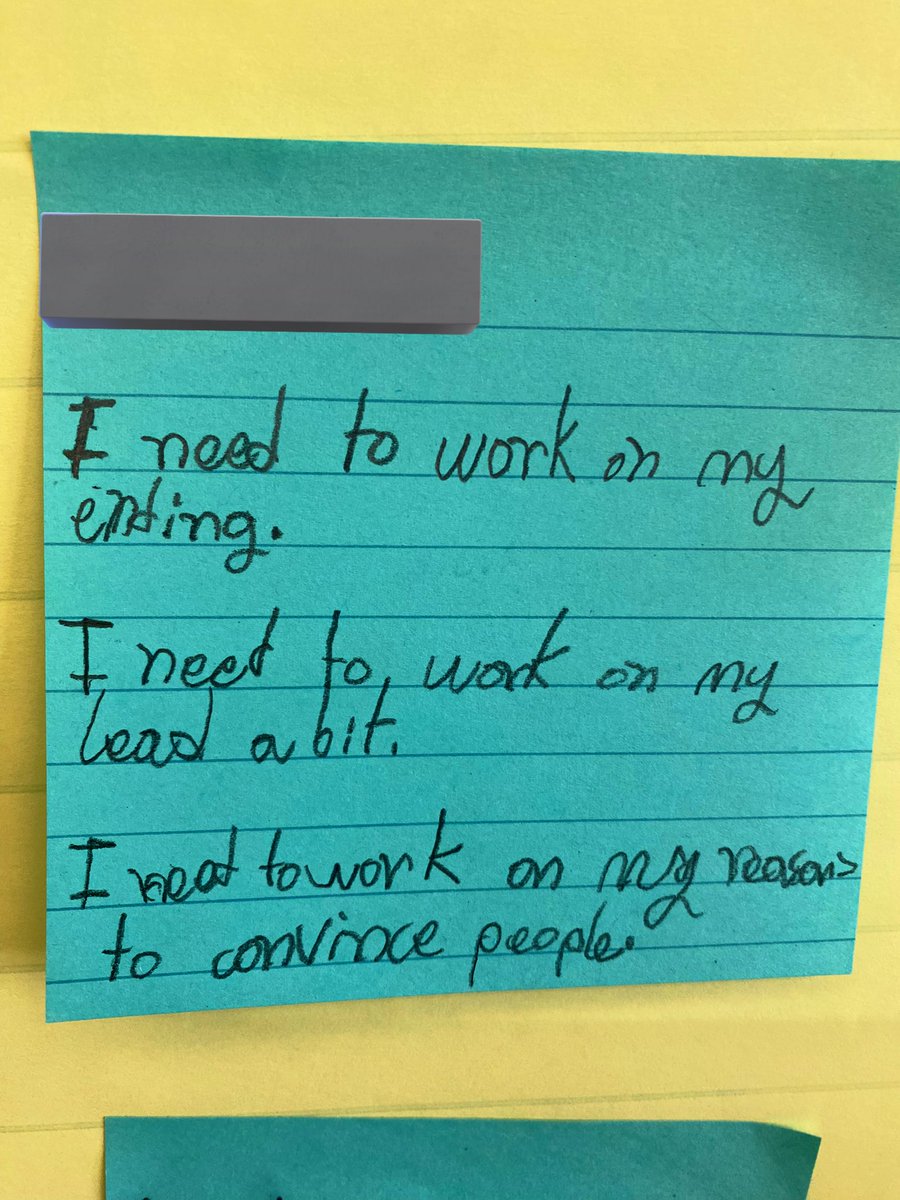 I need to work on my
ending.
I need to work on my
lead a bit.
I need to work on my reasons
to convince people.